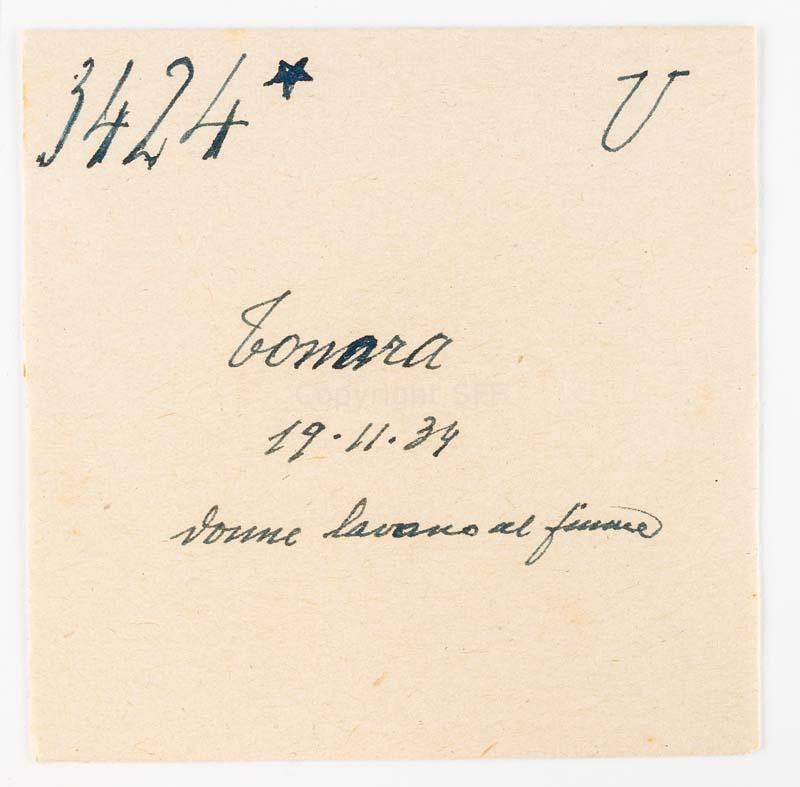 3424* U
Tonara
Copyright SFF
19.11.34
donne lavano al fiume